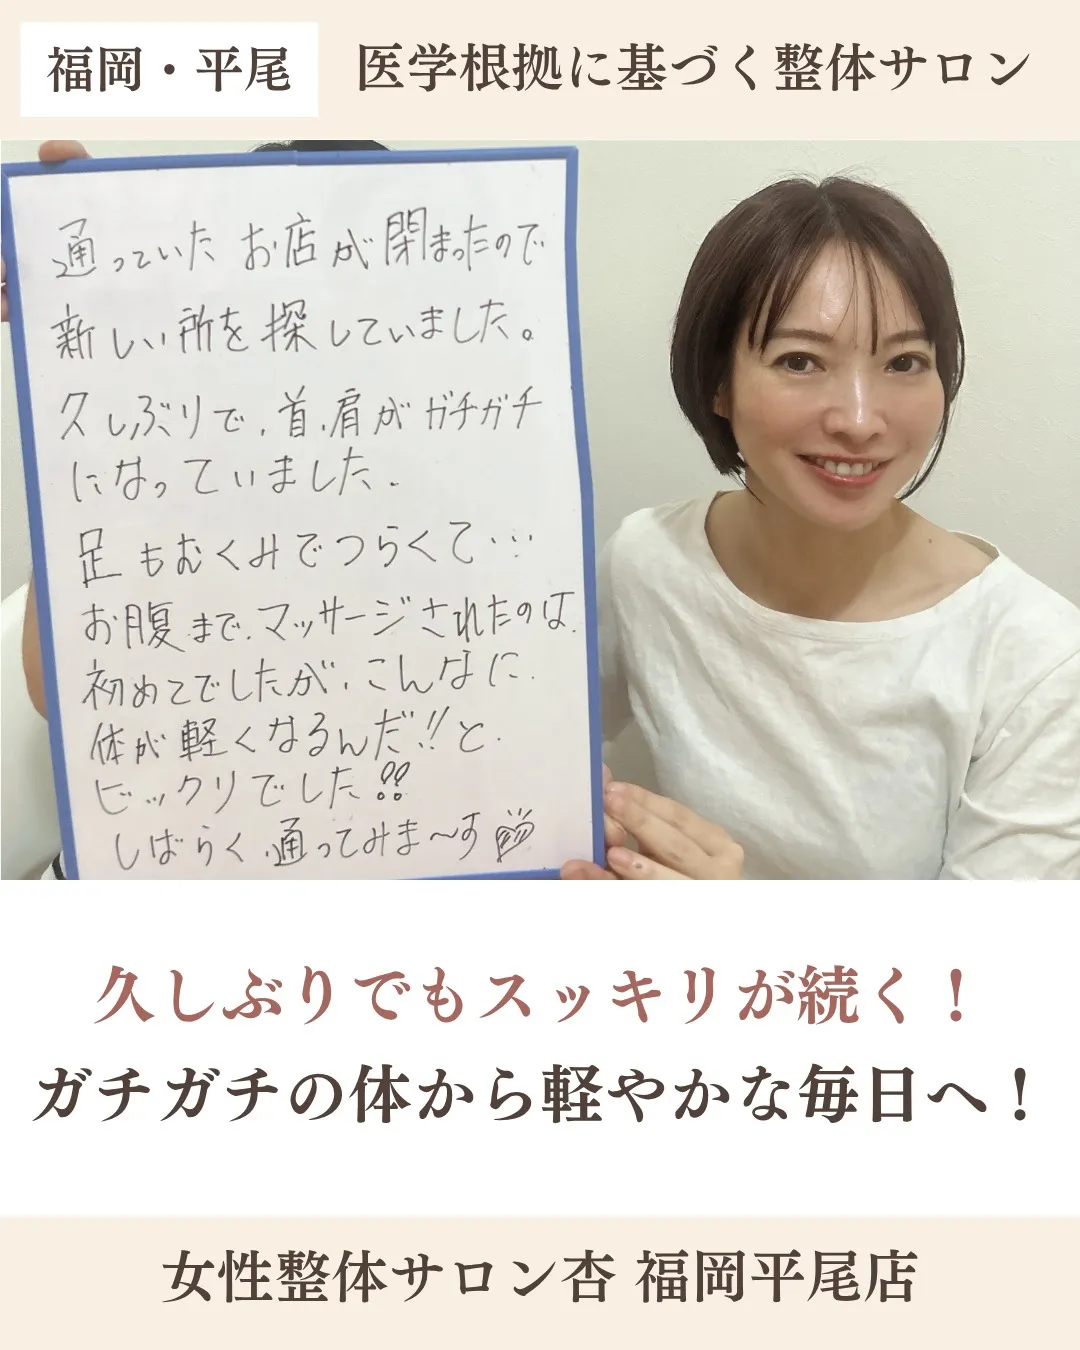 福岡・平尾
医学根拠に基づく整体サロン
通っていたお店が閉まったので
新しい所を探していました。
久しぶりで、首、肩がガチガチ
になっていました。
足もむくみでつらくて…
お腹まで、マッサージされたのは、
初めてでしたが、こんなに、
体が軽くなるんだ!!と、
ビックリでした??
しばらく、通ってみま〜す
久しぶりでもスッキリが続く！
ガチガチの体から軽やかな毎日へ！
女性整体サロン杏 福岡平尾店